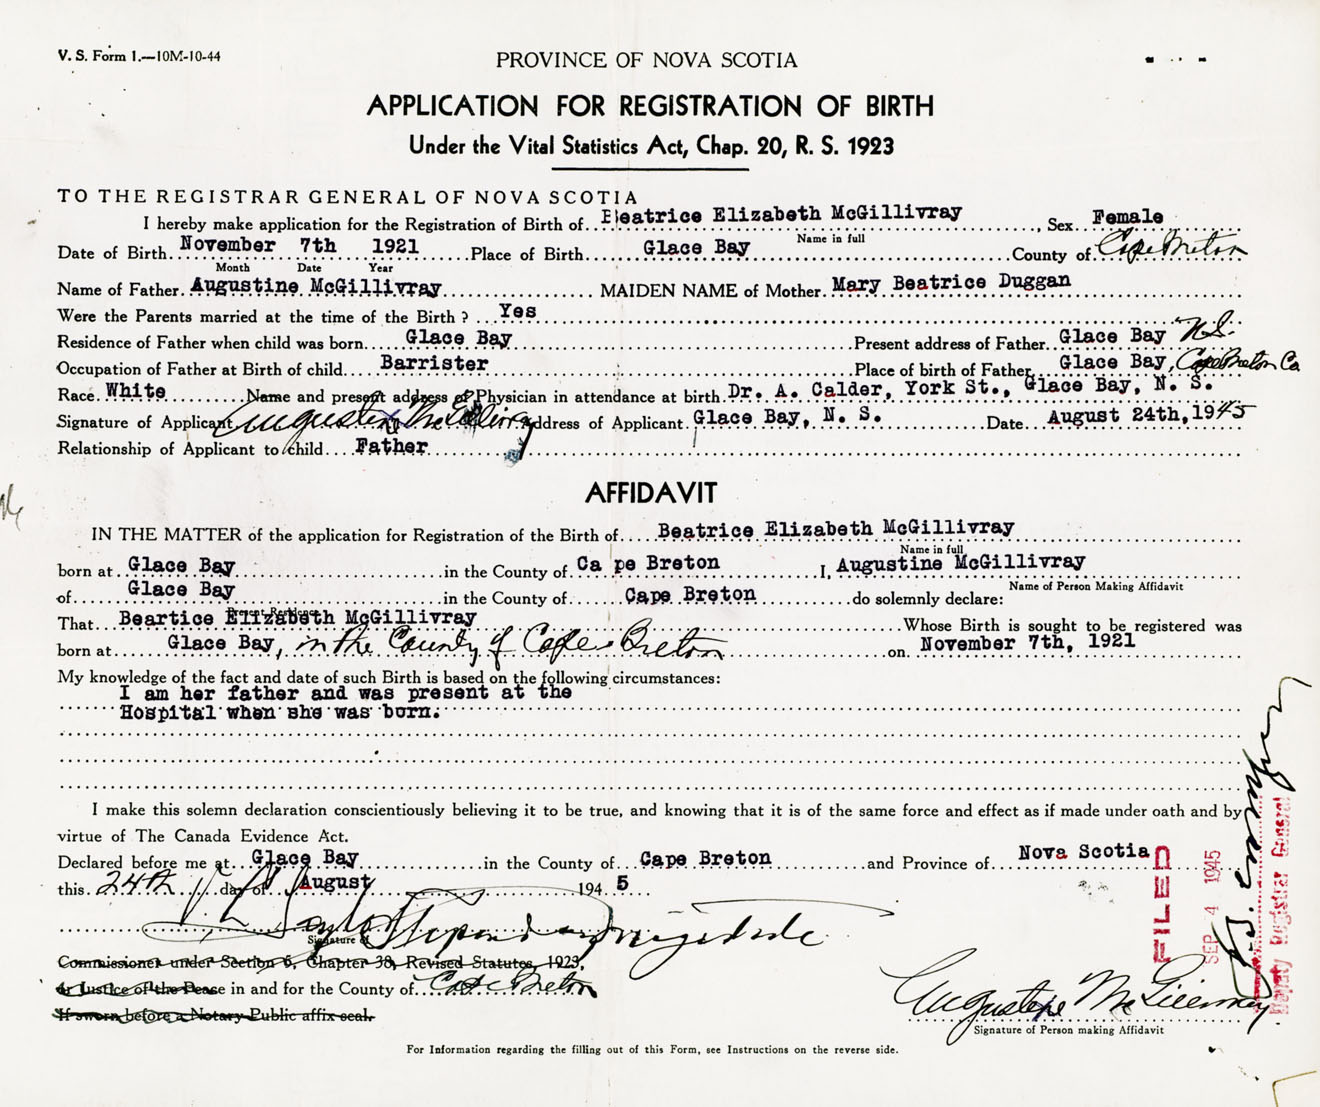 V. S. Form 1.—10M-10-44
PROVINCE OF NOVA SCOTIA
APPLICATION FOR REGISTRATION OF BIRTH
Under the Vital Statistics Act, Chap. 20, R. S. 1923
TO THE REGISTRAR GENERAL OF NOVA SCOTIA
I hereby make application for the Registration of Birth of Beatrice Elizabeth McGillivray, Sex Female
Name in full
Date of Birth November 7th 1921 Place of Birth Glace Bay County of Cape Breton
Month Date Year
Name of Father Augustine McGillivray MAIDEN NAME of Mother Mary Beatrice Duggan
Were the Parents married at the time of the Birth ? Yes
Residence of Father when child was born Glace Bay Present address of Father Glace Bay N.S.
Occupation of Father at Birth of child Barrister Place of birth of Father Glace Bay, Cape Breton Co
Race White Name and present address of Physician in attendance at birth Dr. A. Calder, York St., Glace Bay, N. S.
Signature of Applicant Augustine McGillivray Address of Applicant Glace Bay, N. S. Date August 24th, 1945
Relationship of Applicant to child Father
AFFIDAVIT
IN THE MATTER of the application for Registration of the Birth of Beatrice Elizabeth McGillivray
Name in full
born at Glace Bay in the County of Ca pe Breton I, Augustine McGillivray
Name of Person Making Affidavit
of Glace Bay in the County of Cape Breton do solemnly declare:
Present Residence
That Beartice Elizabeth McGillivray Whose Birth is sought to be registered was
born at Glace Bay, in the County of Cape Breton on November 7th, 1921
My knowledge of the fact and date of such Birth is based on the following circumstances:
I am her father and was present at the
Hospital when she was born.
I make this solemn declaration conscientiously believing it to be true, and knowing that it is of the same force and effect as if made under oath and by
virtue of The Canada Evidence Act.
Declared before me at Glace Bay in the County of Cape Breton and Province of Nova Scotia
this 24th day of August 1945
Stipendiary Magistrate
Signature of
Commissioner under Section 6, Chapter 38, Revised Statutes, 1923,
or Justice of the Peace in and for the County of Cape Breton
If sworn before a Notary Public affix seal.
Augustine McGillivray
Signature of Person making Affidavit
For Information regarding the filling out of this Form, see Instructions on the reverse side.
FILED
SEP 4 1945
Deputy Registrar General